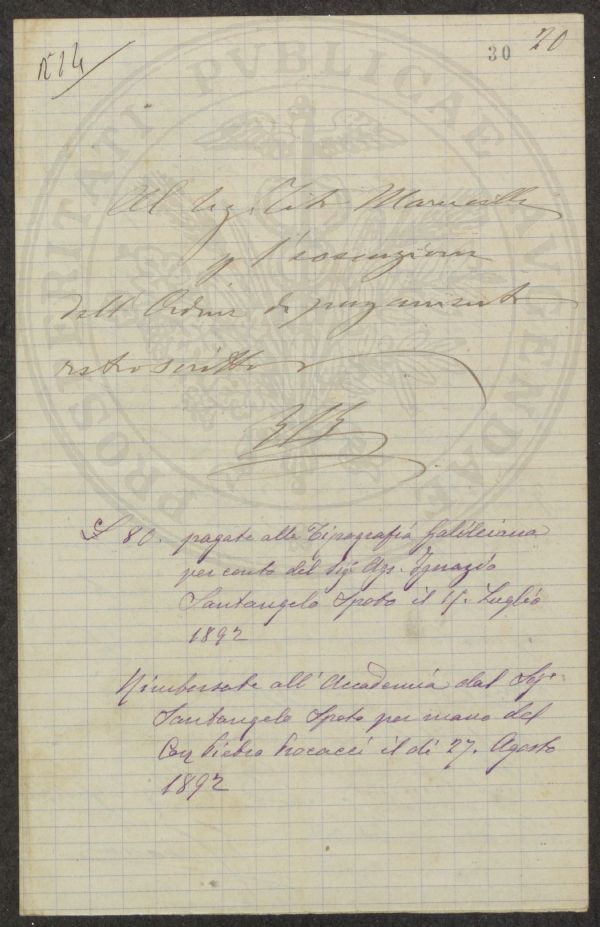 N° 14
30
20
PROSPERITATI PUBLICAE AUGENDAE
Al Sig. Tito Marucelli
p l'esecuzione
dell'Ordine di pagamento
retroscritto
£ 80. pagate alla Tipografia Galileiana
per conto del Sig. Ignazio
Santangelo Spoto il Luglio
1892
Rimborsate all'Accademia dal Sig.
Santangelo Spoto per mano del
Pietro Procacci il dì 27. Agosto
1892